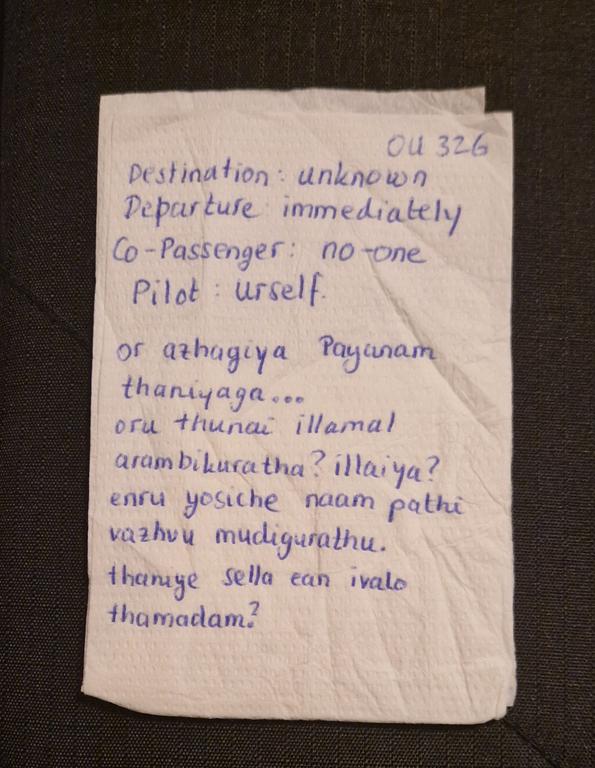 OU 326
Destination: unknown
Departure: immediately
Co-Passenger: no-one
Pilot: urself.
or azhagiya Payanam
thaniyaga...
oru thunai illamal
arambikuratha? illaiya?
enru yosiche naam pathi
vazhvu mudigurathu.
thaniye sella ean ivalo
thamadam?